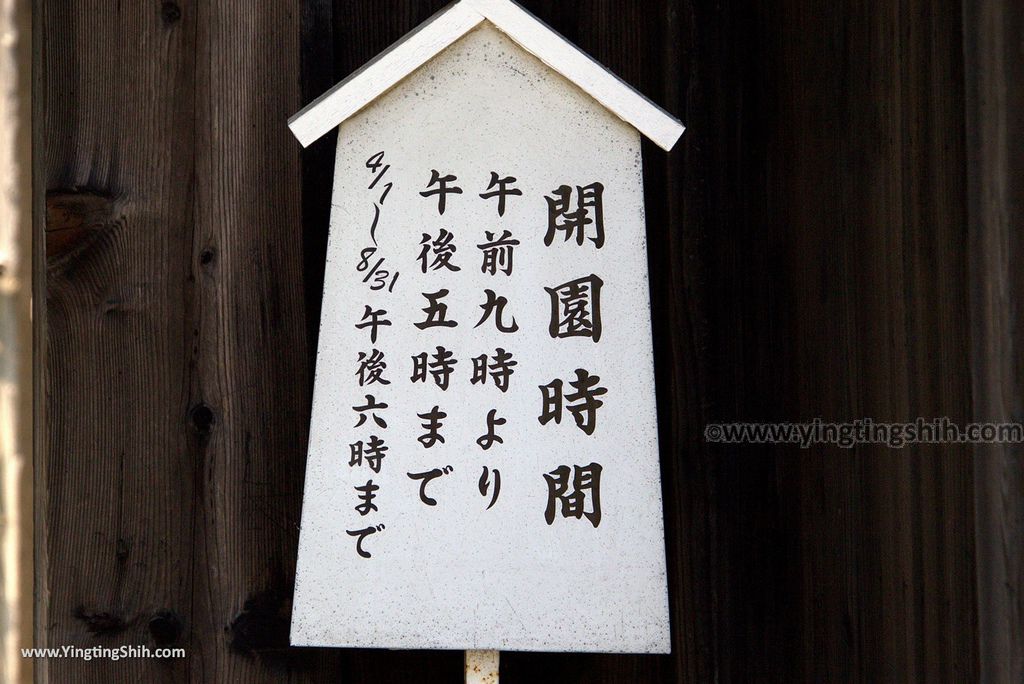 開園時間
午前九時より
午後五時まで
4/1～8/31午後六時まで
©www.yingtingshih.com
www.YingtingShih.com